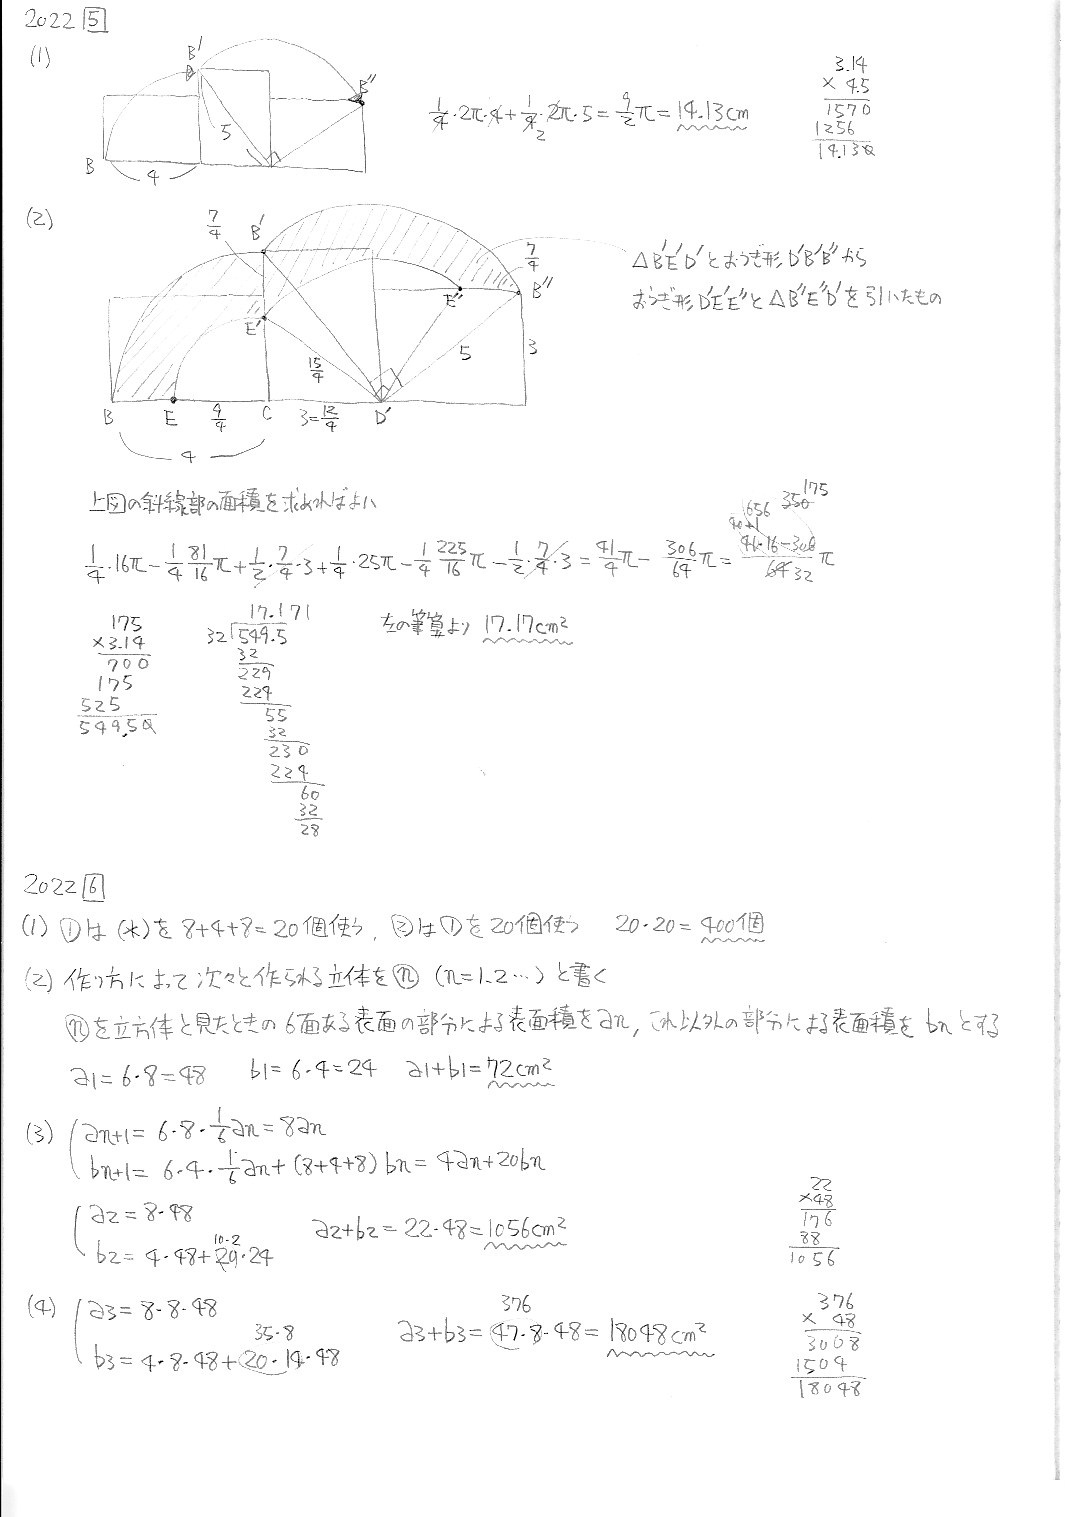 2022 5
(1)
B' D B'' 5 B 4
1/4・2π・4+1/4・2π・5=9/2π=14.13cm
3.14
× 4.5
1570
1256
14.130
(2)
7/4 B' 7/4 B'' E' E'' 15/4 5 3
B E 9/4 C 3=12/4 D'
4
△B'E'D'とおうぎ形D'B'B''から
おうぎ形D'E'E''と△B''E''D'を引いたもの
上図の斜線部の面積を求めればよい
1/4・16π-1/4 81/16π+1/2・7/4・3+1/4・25π-1/4 225/16π-1/2・7/4・3=41/4π-306/64π=(41・16-306)/64π
40+1 656 350 175 32
175
×3.14
700
175
525
549.50
17.171
32)549.5
32
229
224
55
32
230
224
60
32
28
左の筆算より 17.17cm²
2022 6
(1) ①は(水)を8+4+8=20個使う、②は①を20個使う 20・20=400個
(2) 作り方によって次々と作られる立体をⓝ (n=1.2…)と書く
ⓝを立方体と見たときの6面ある表面の部分による表面積をan, これ以外の部分による表面積をbnとする
a1=6・8=48 b1=6・4=24 a1+b1=72cm²
(3) an+1=6・8・1/6an=8an
bn+1=6・4・1/6an+(8+4+8)bn=4an+20bn
a2=8・48
b2=4・48+20・24
10・2
a2+b2=22・48=1056cm²
22
×48
176
88
1056
(4) a3=8・8・48
b3=4・8・48+20・14・48
35・8
376
a3+b3=47・8・48=18048cm²
376
× 48
3008
1504
18048